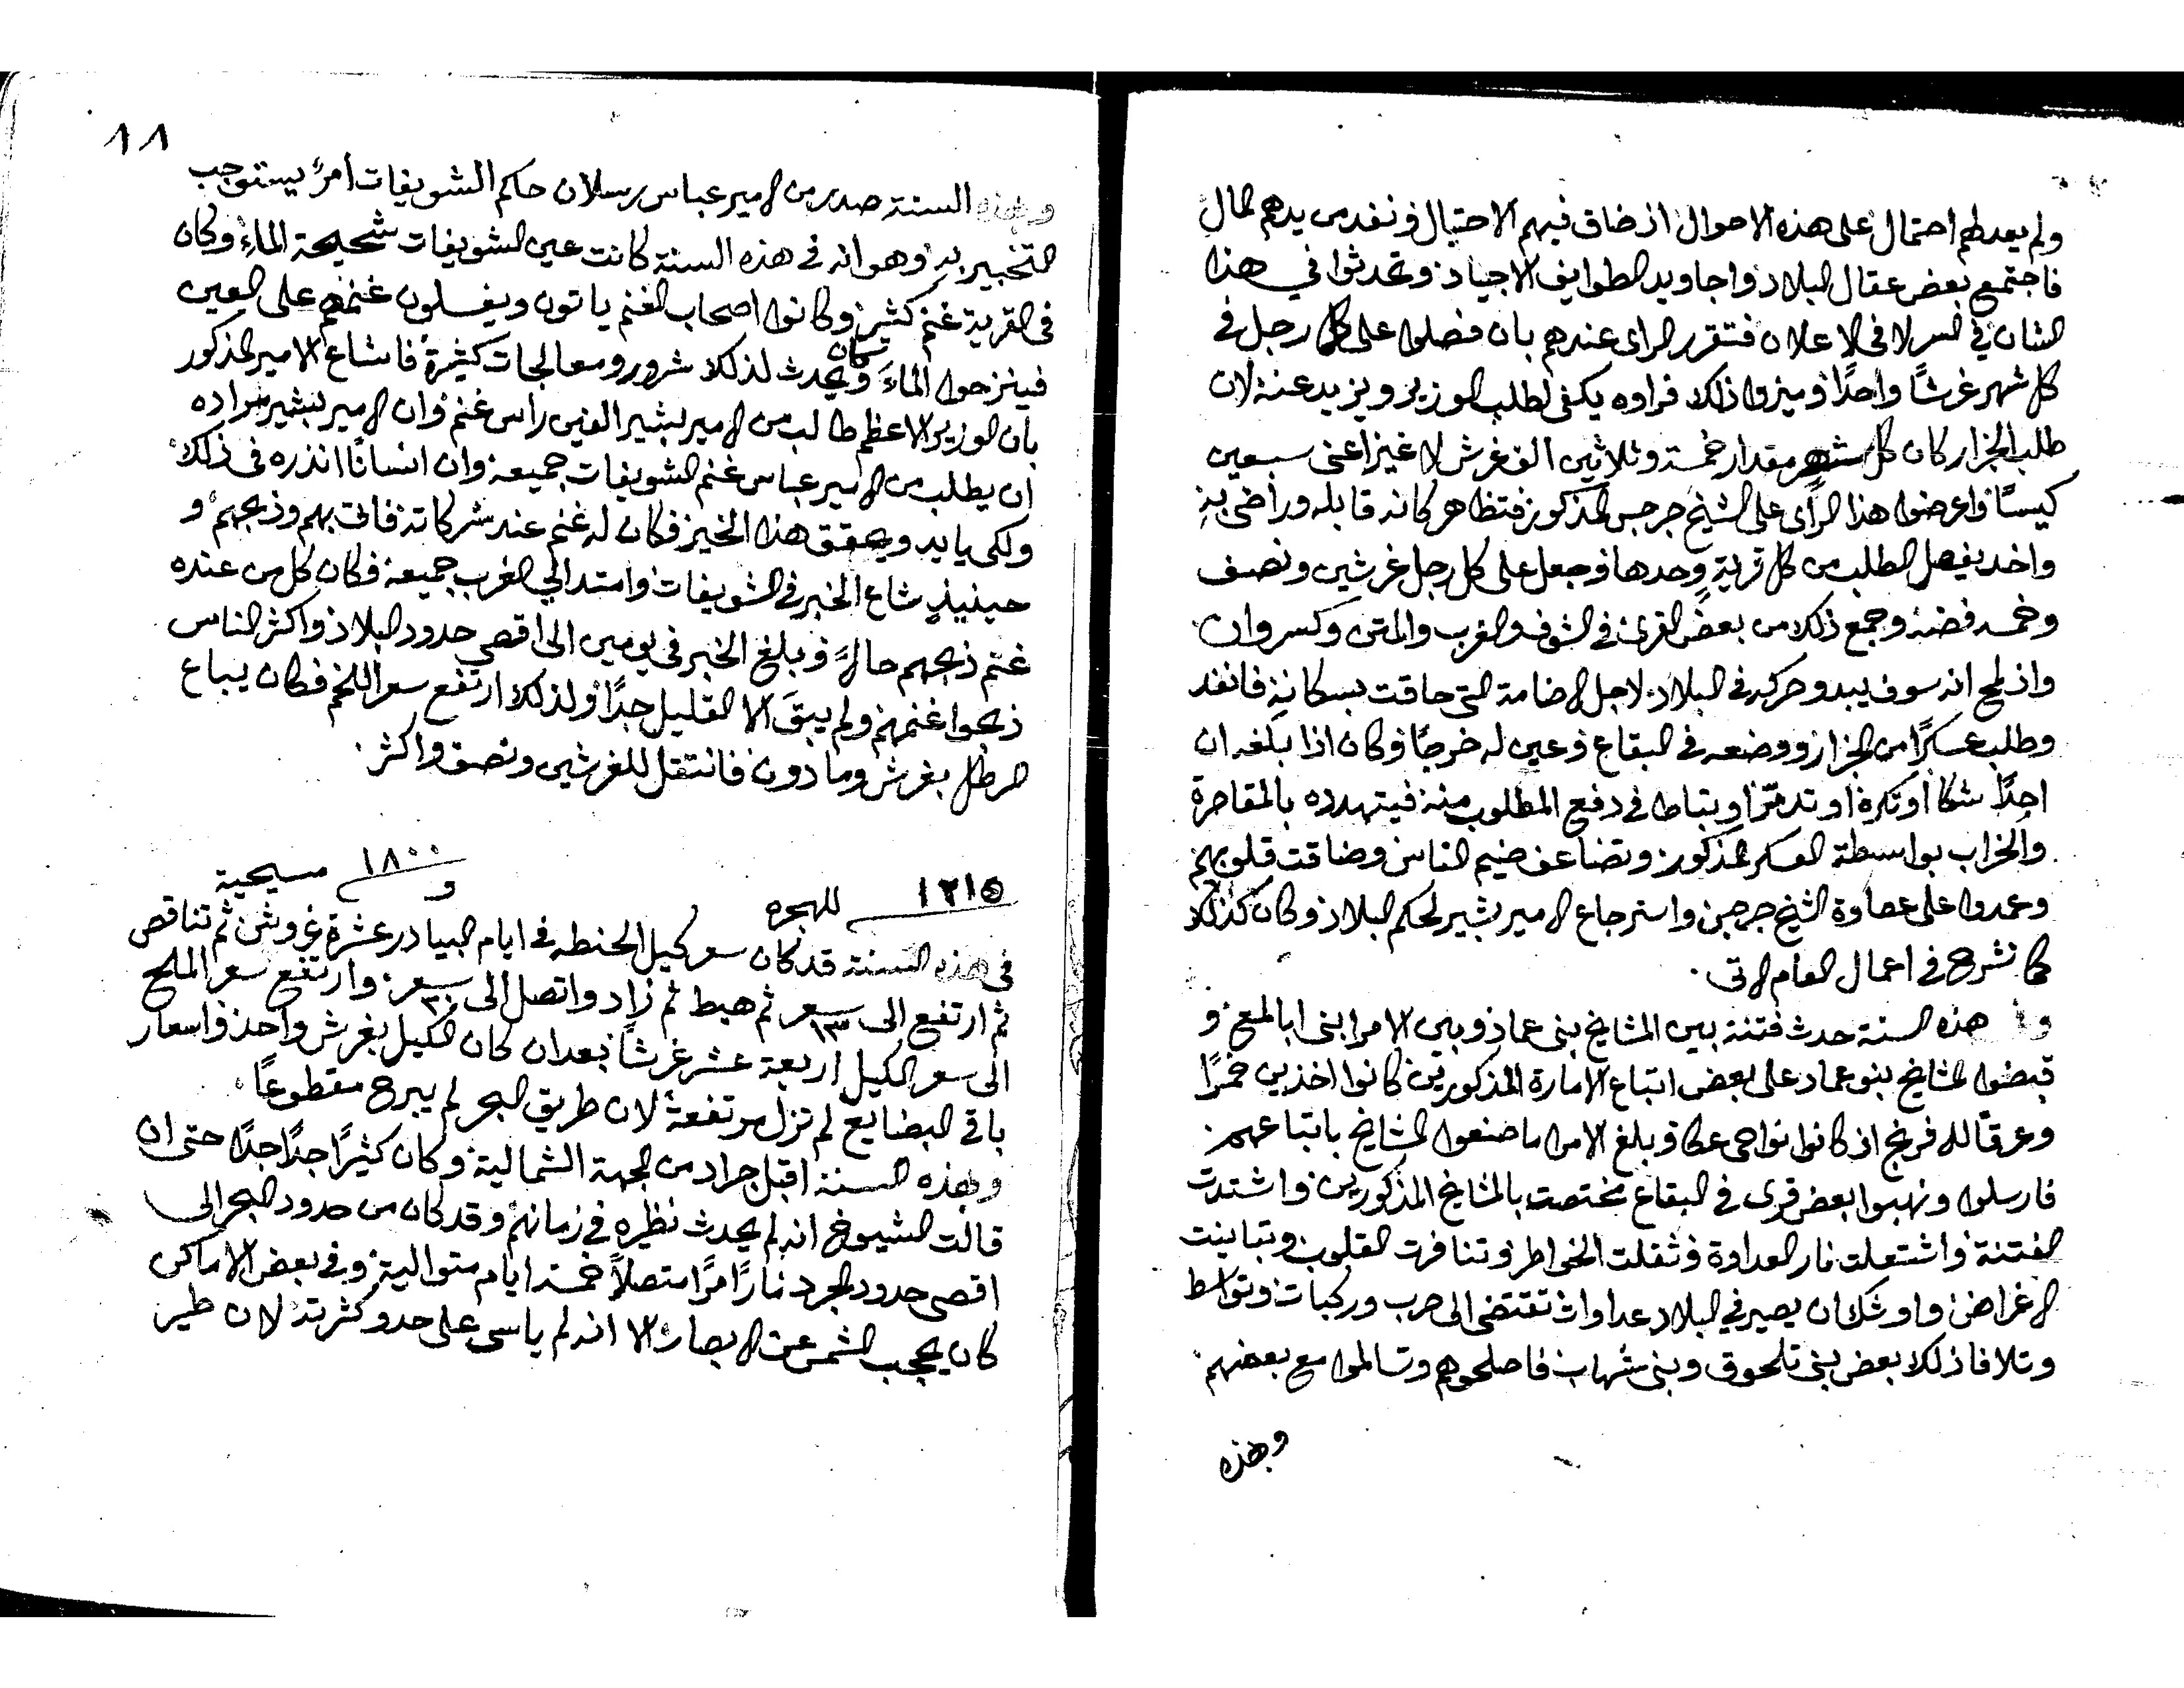 ولم يعد لهم احتمال على هذه الاحوال اذ ضاق فيهم الاحتيال ونفد من يدهم المال
فاجتمع بعض عقال البلاد واجاويد الطوايف الاجياد وتحدثوا في هذا
الشان في السر لا في الاعلان فتقرر الراى عندهم بان فصلوا على كل رجل في
كل شهر غرشًا واحدًا وميزوا ذلك فراوه يكفى لطلب الوزير ويزيد عنه لان
طلب الجزار كان كل شهر مقدار خمسة وثلاثين الف غرش لا غير اعنى سبعين
كيسًا واعرضوا هذا الرأى على الشيخ جرجس المذكور فتظاهر كانه قابله وراضى بهِ
واخد يفصل الطلب من كل قريةٍ وحدها وجعل على كل رجل غرشين ونصف
وخمسه فضه وجمع ذلك من بعض القرى في الشوف والغرب والمتن وكسروان
واذ لمح انه سوف يبدو حركه في البلاد لاجل الضامة التى حاقت بسكانهِ فانفد
وطلب عسكرًا من الجزار ووضعه في البقاع وعين له خرجًا وكان اذا بلغه ان
احدًا شكا او تكره او تدمر او يتباطا في دفع المطلوب منه فيتهدده بالمقاصرة
والخراب بواسطة العسكر المذكور وتضاعف ضيم الناس وضاقت قلوبهم
وعمدوا على عصاوة الشيخ جرجس واسترجاع الامير بشير لحكم البلاد وكان كذلك
كما نشرح في اعمال العام الاتى
هذه السنة حدث فتنة بين المشايخ بنى عماد وبين الامرا بنى ابا لمع و
قبضوا المشايخ بنو عماد على بعض اتباع الامارة المذكورين كانوا اخذين خمرًا
وعرقًا للافرنج اذ كانوا نواحى عكا وبلغ الامرا ما صنعوا المشايخ باتباعهم
فارسلوا ونهبوا بعض قرى في البقاع مختصت بالمشايخ المذكورين واشتدت
الفتنة واشتعلت نار العداوة وثقلت الخواطر وتنافرت القلوب وتباينت
الاغراض واوشك ان يصير في البلاد عداوات تقتضى الى حرب وركبات وتواسط
وتلافا ذلك بعض بنى تلحوق وبنى شهاب فاصلحوهم وتسالموا مع بعضهم
وبهذه
٨١
وبهذه السنة صدر من الامير عباس رسلان حاكم الشويفات أمرًا يستوجب
التخبير بهِ وهو انه في هذه السنة كانت عين الشويفات شحيحة الماء وكان
فى القرية غنم كثير وكانوا اصحاب الغنم ياتون ويغسلون غنمهم على العين
فينزحوا الماءَ وكان يحدث لذلك شرور ومعالجات كثيرة فاشاع الامير المذكور
بان الوزير الاعظم طالب من الامير بشير الفين راس غنم وان الامير بشير مراده
ان يطلب من الامير عباس غنم الشويفات جميعه وان انسانًا انذره فى ذلك
ولكى يايد ويحقق هذا الخبر فكان له غنم عند شركاته فاتى بهم وذبحهم و
حينيذٍ شاع الخبر فى الشويفات وامتد الى الغرب جميعه فكان كل من عنده
غنم ذبحهم حالاً وبلغ الخبر فى يومين الى اقصى حدود البلاد واكثر الناس
ذبحوا غنمهم ولم يبقَ الا القليل جدًا ولذلك ارتفع سعر اللحم فكان يباع
الرطل بغرش وما دون فانتقل للغرشين ونصف واكثر
١٢١٥ للهجره و ١٨٠٠ مسيحية
فى هذه السنة قد كان سعر كيل الحنطه فى ايام البيادر عشرة غروش ثم تناقص
ثم ارتفع الى سعر ١٣ ثم هبط ثم زاد واتصل الى سعر ٢٠ وارتفع سعر الملح
الى سعر الكيل اربعة عشر غرشًا بعد ان كان الكيل بغرش واحد واسعار
باقى البضايع لم تزل مرتفعة لان طريق البحر لم يبرح مقطوعًا
وبهذه السنة اقبل جراد من الجهة الشمالية وكان كثيرًا جدًا جدًا حتى ان
قالت الشيوخ انه لم يحدث نظيره في زمانهم وقد كان من حدود البحر الى
اقصى حدود الجرد مارًا متصلاً خمسة ايام متوالية وفى بعض الاماكن
كان يحجب الشمس عن الابصار الا انه لم ياسى على حدو كثرته لان طير